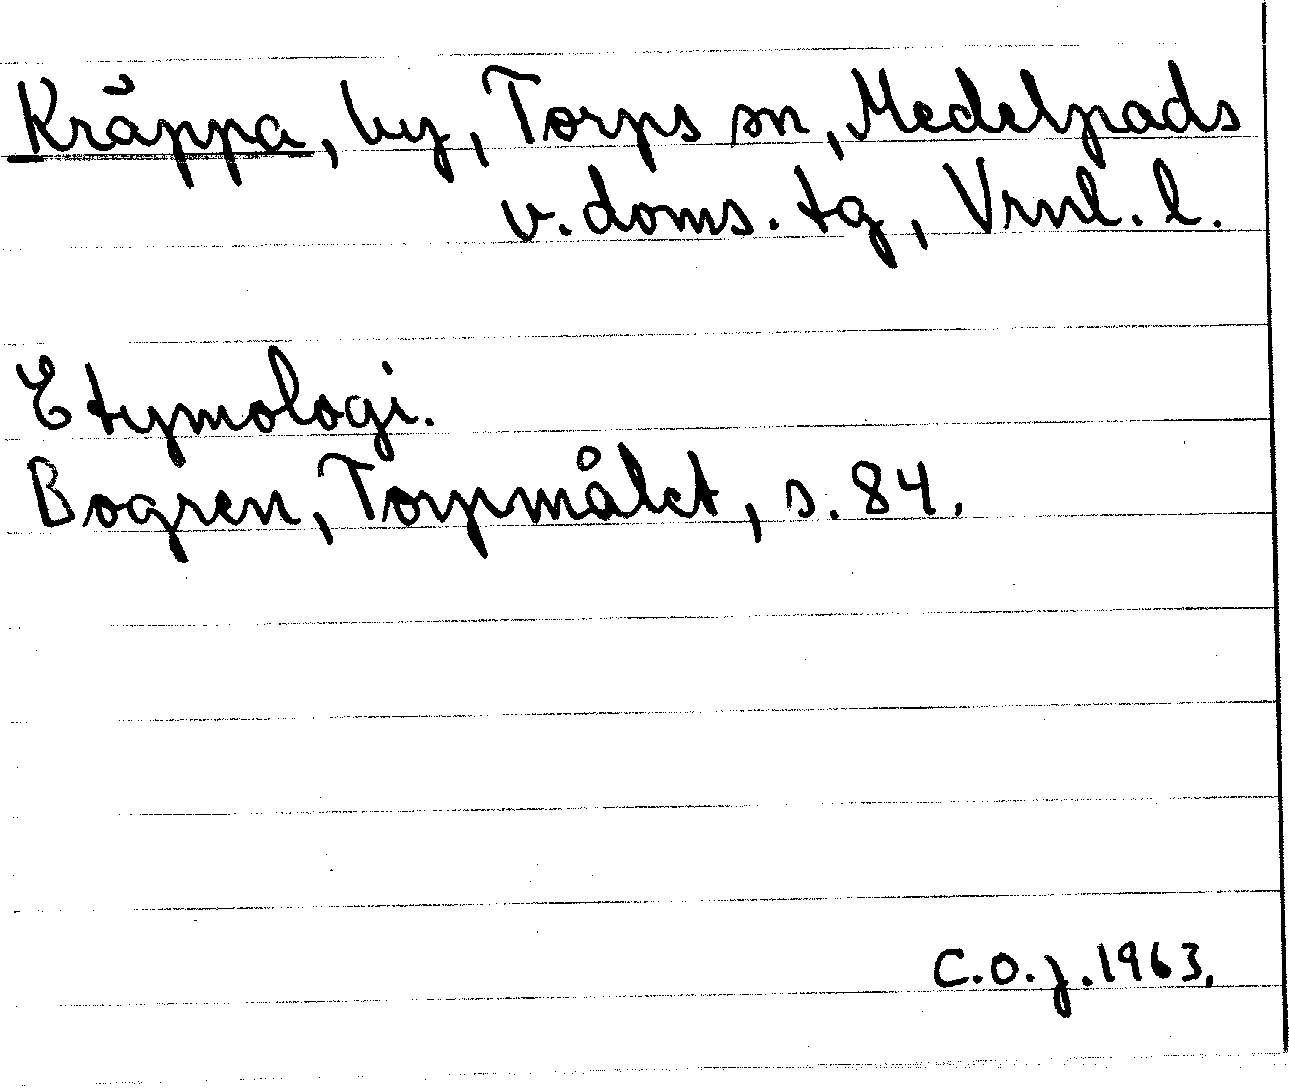 Kräppa, by, Torps sn, Medelpads
v. doms. tg, Vrnl. l.
Etymologi.
Bogren, Torpmålet, s. 84.
C.O.J. 1963.